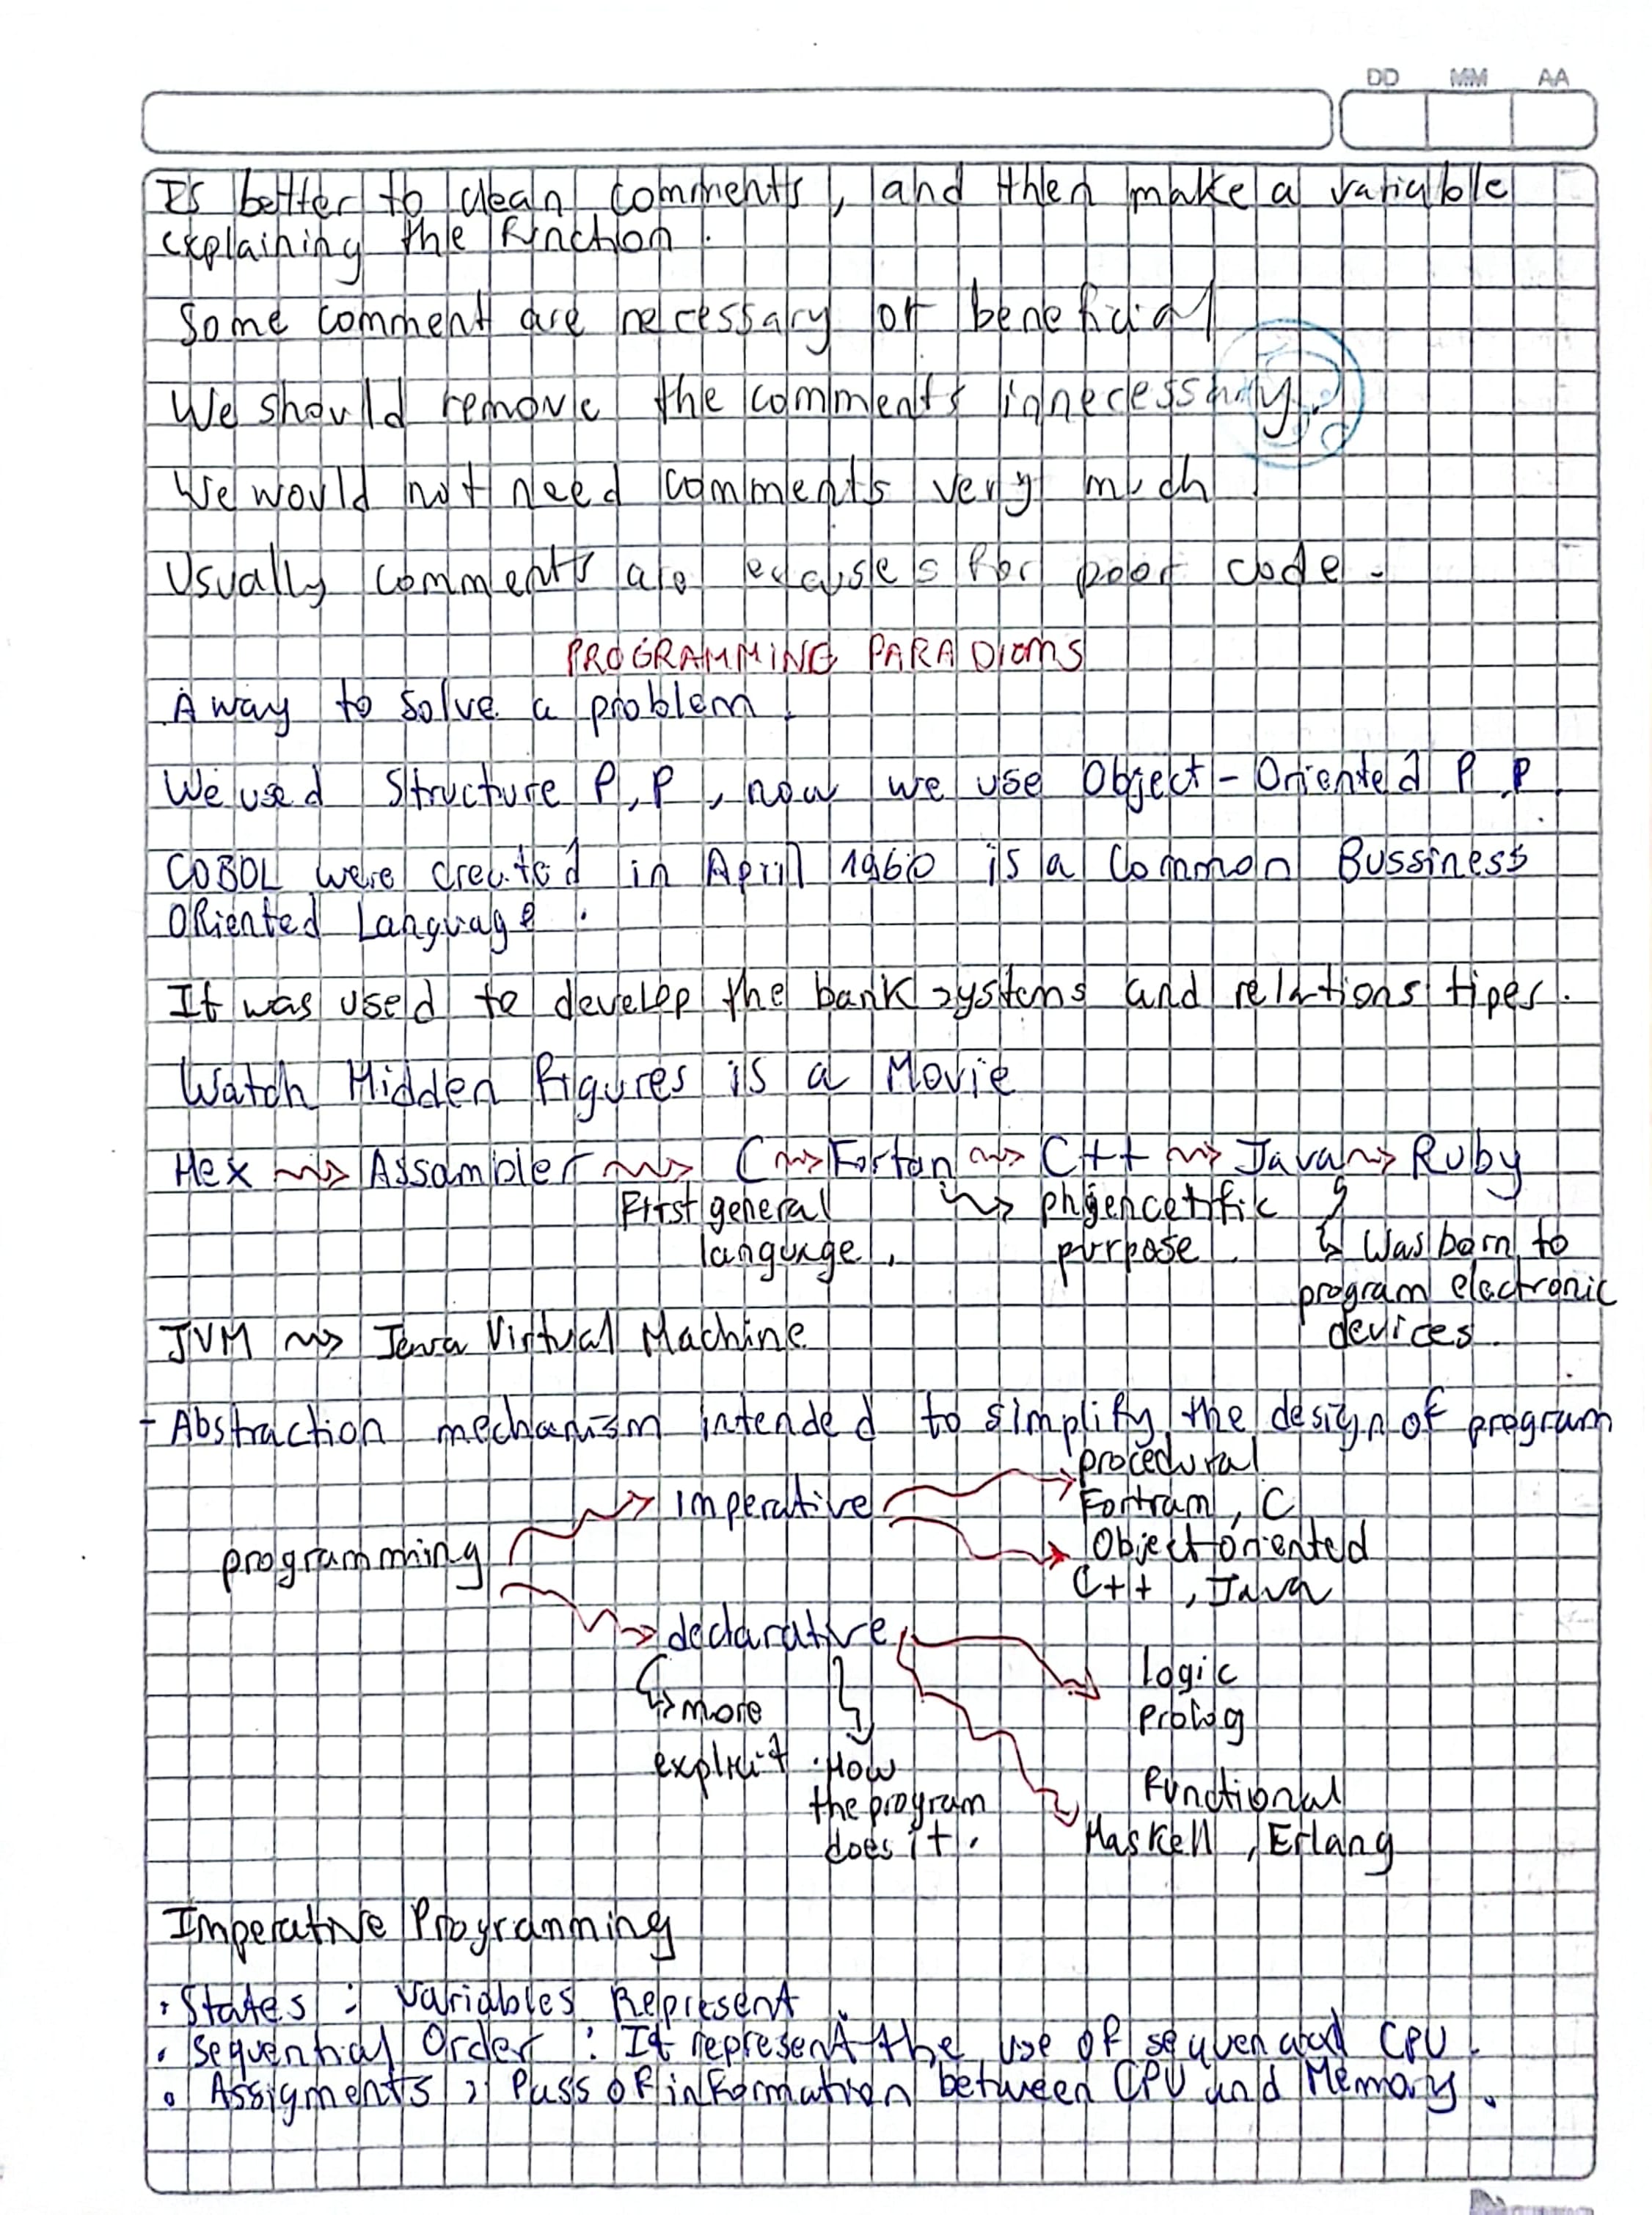 DD MM AA
Is better to clean comments, and then make a variable
explaining the function.
Some comment are necessary or beneficial
We should remove the comments innecessary.
We would not need comments very much.
Usually comments are excuses for poor code.
PROGRAMMING PARADIGMS
A way to solve a problem.
We used Structure P.P, now we use Object-Oriented P.P.
COBOL were created in April 1960 is a Common Bussiness
ORiented Language.
It was used to develop the bank systems and relations tipes.
Watch Hidden Figures is a Movie
Hex → Assambler → C → Fortan → C++ → Java → Ruby
First general → purpose
language. ↳ Was born to
program electronic
JVM → Java Virtual Machine devices.
- Abstraction mechanism intended to simplify the design of program
procedural
imperative Fortram, C
programming Object oriented
C++, Java
declarative
↳ more logic
explicit Prolog
.How
the program Functional
does it. Haskell, Erlang
Imperative Programming
• States : Variables Represent
• Sequential Order : It represent the use of CPU.
• Assigments : Pass of information between CPU and Memory.